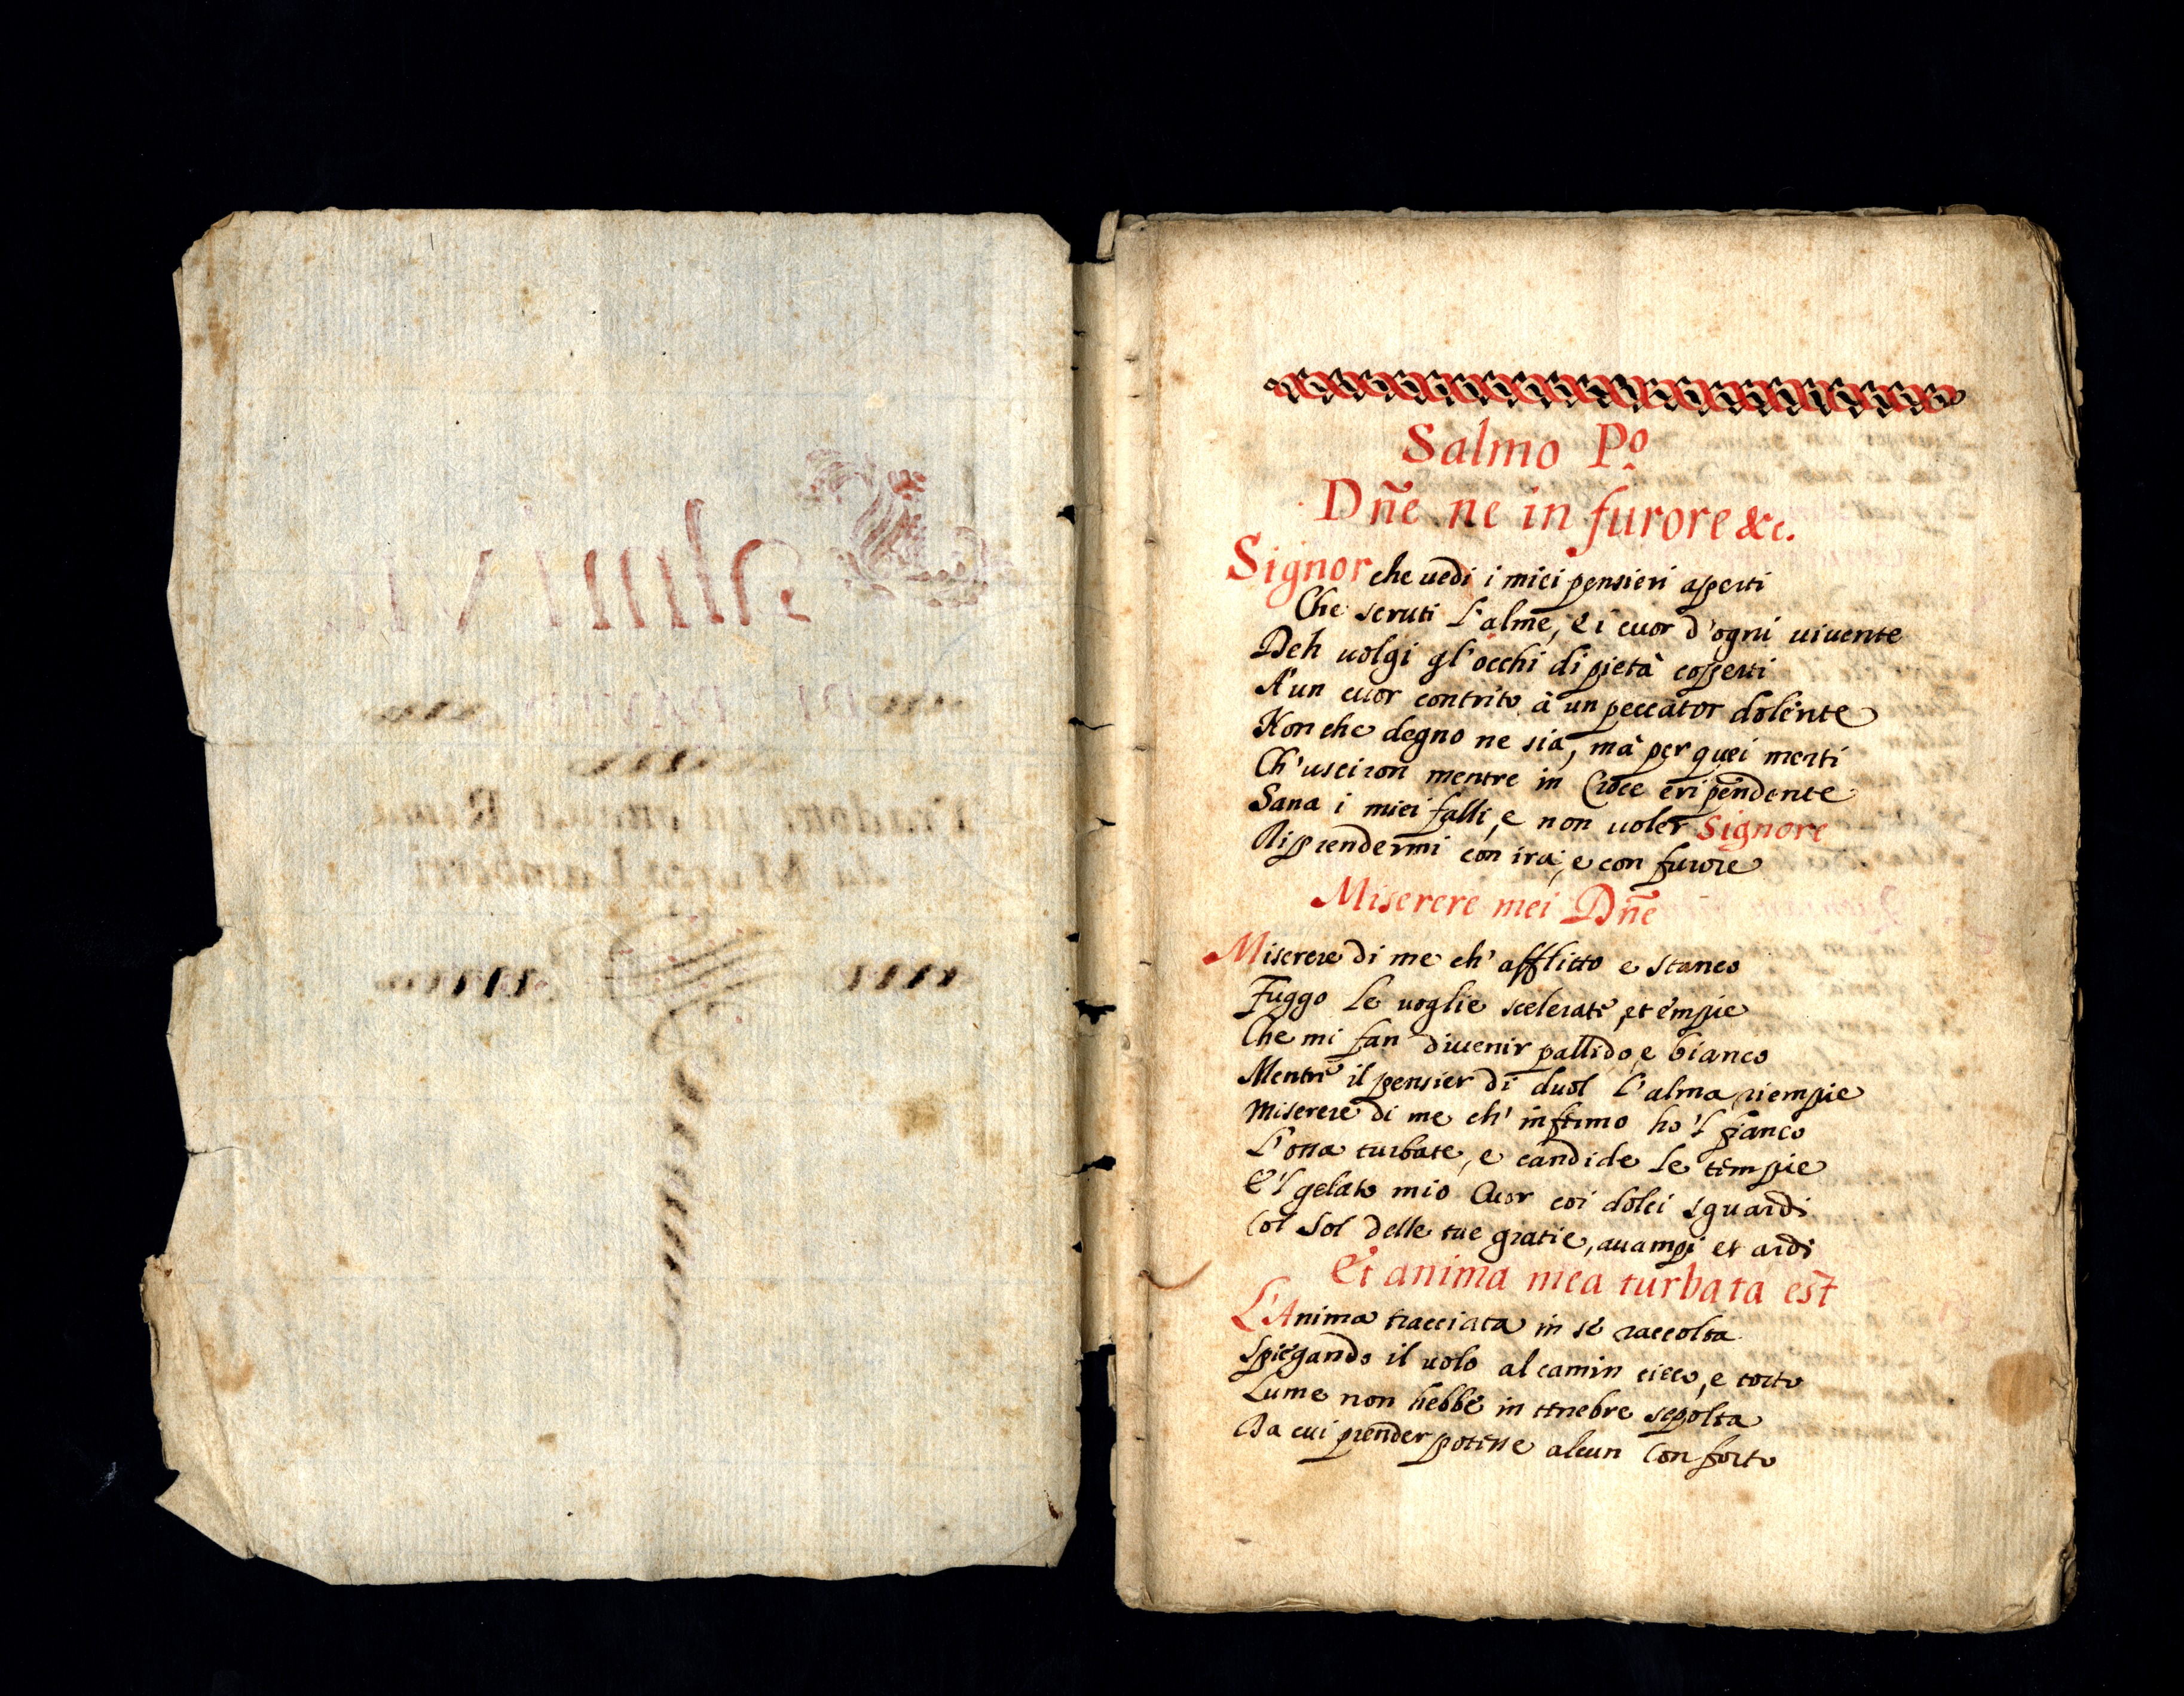 Salmo Pº
Dñe ne in furore &c.
Signor che uedi i miei pensieri aperti
Che scruti l'alme, e i cuor d'ogni uiuente
Deh uolgi gl'occhi di pietà coperti
A'un cuor contrito à un peccator dolente
Non che degno ne sia, mà per quei merti
Ch'usciron mentre in Croce eri pendente
Sana i miei falli, e non uoler Signore
Riprendermi con ira, e con furore
Miserere mei Dñe
Miserere di me ch'afflitto e stanco
Fuggo le uoglie scelerate, et empie
Che mi fan diuenir pallido, e bianco
Mentre il pensier di duol l'alma riempie
Miserere di me ch'infermo ho'l fianco
L'ossa turbate, e candide le tempie
E'l gelato mio Cuor coi dolci sguardi
Col Sol delle tue gratie, auampi et ardi
Et anima mea turbata est
L'Anima in sè raccolta
Spiegando il uolo al camin cieco, e torto
Lume non hebbe in tenebre sepolta
Da cui prender potesse alcun Conforto